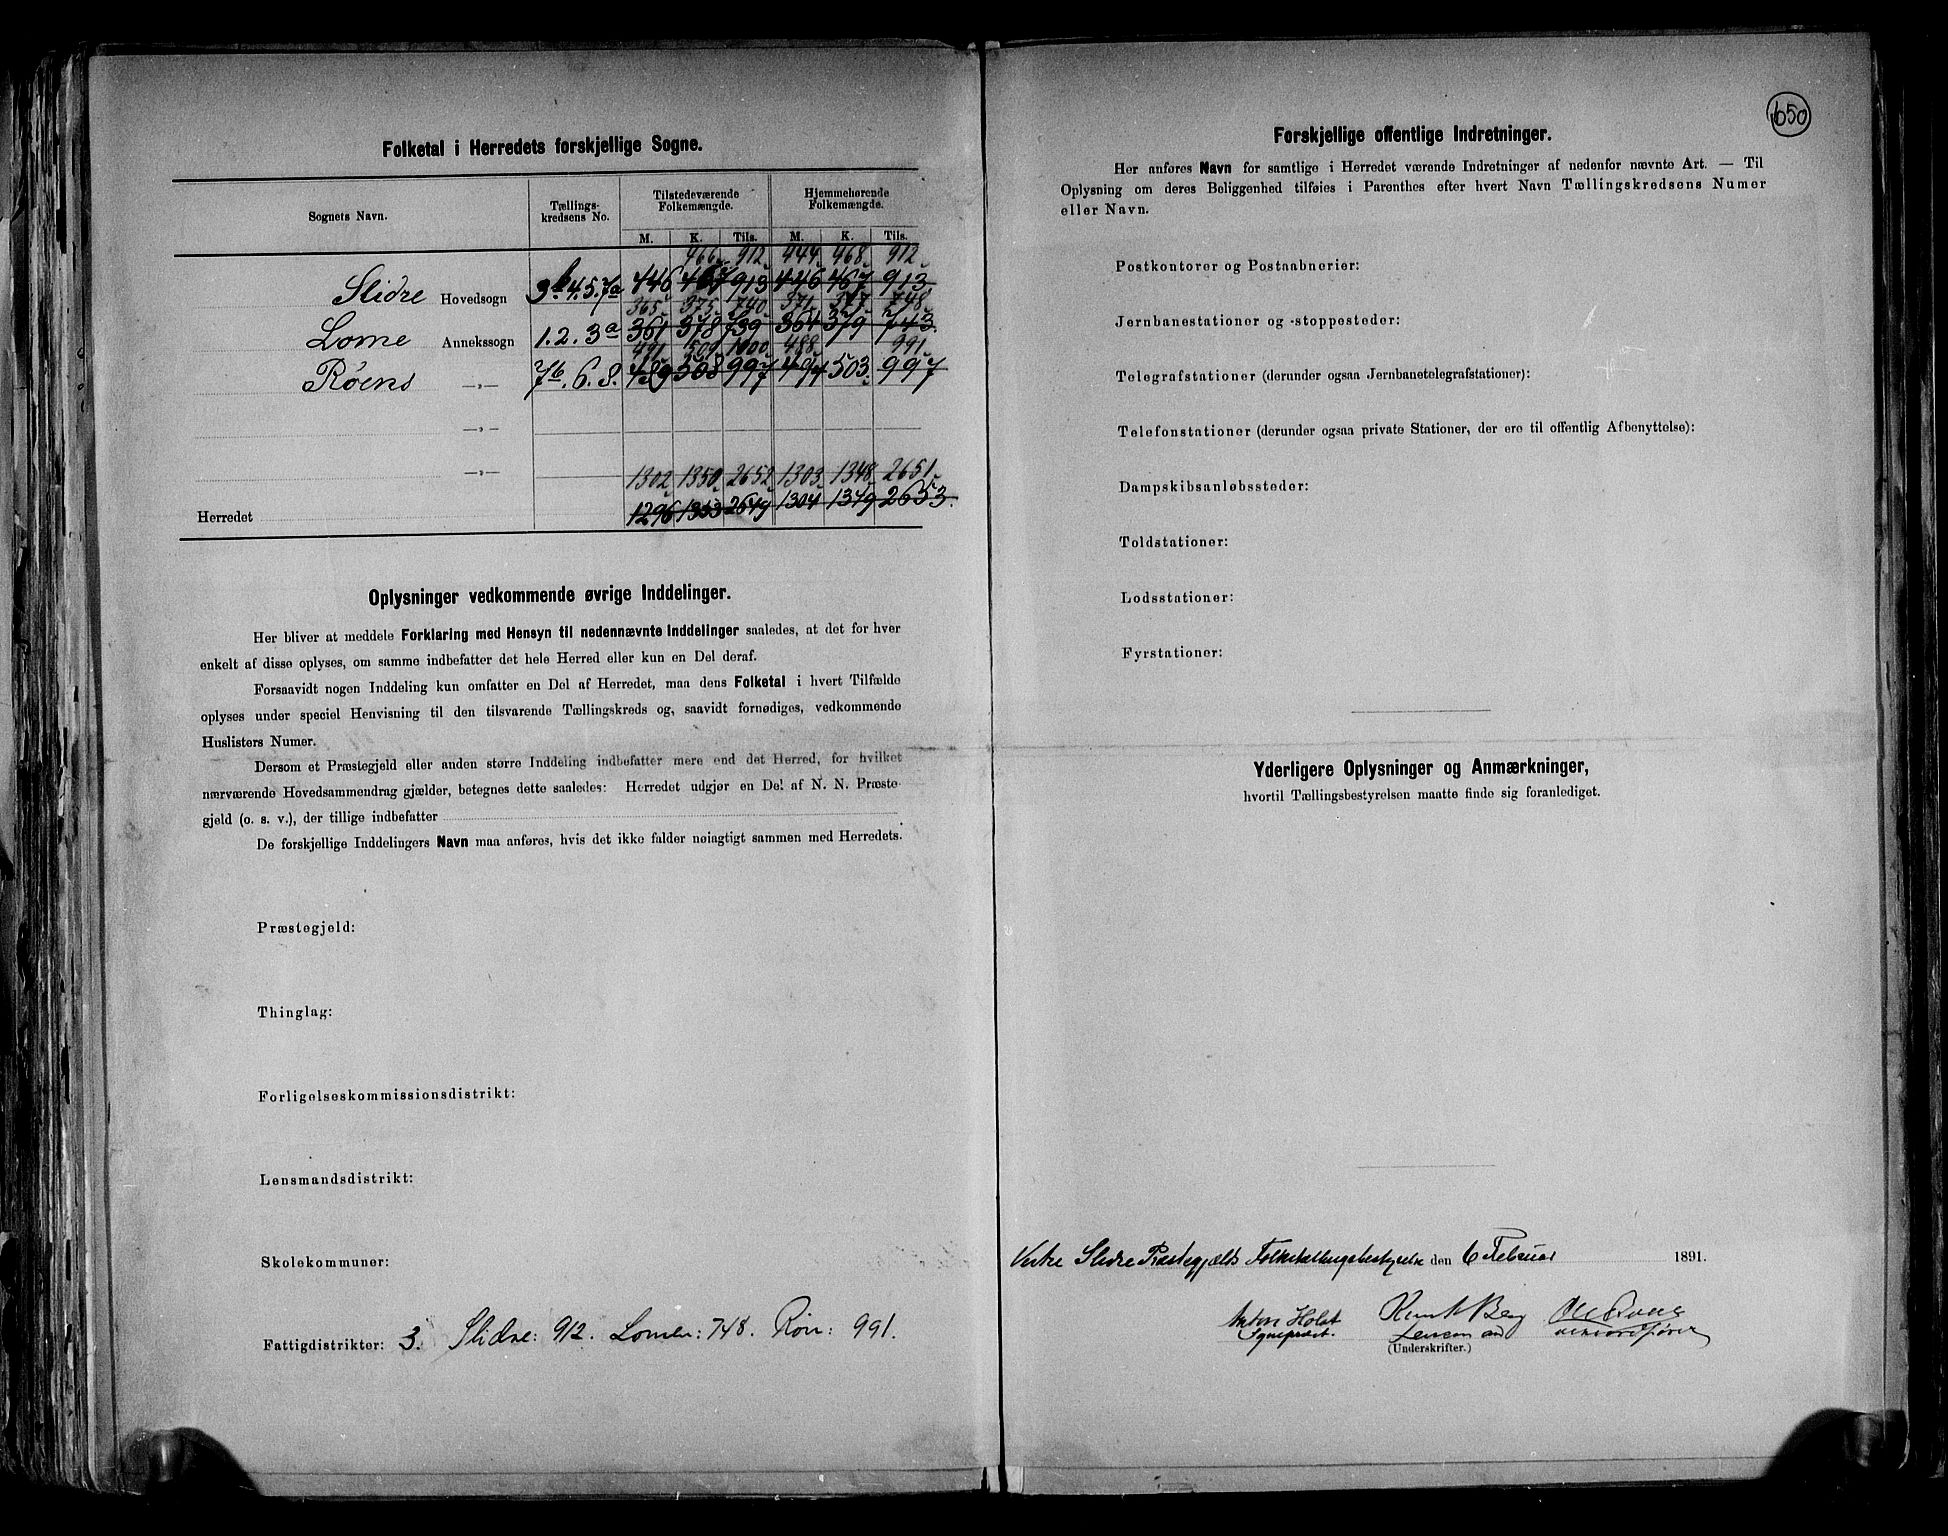 Folketal i Herredets forskjellige Sogne.
Sognets Navn. Tællings-kredsens No. Tilstedeværende Folkemængde. Hjemmehørende Folkemængde.
M. K. Tils. M. K. Tils.
466 912 444 468 912
Slidre Hovedsogn 3b. 4. 5. 7a 446 467 913 446 467 913
365 375 740 371 377 748
Lome Annekssogn 1. 2. 3a 361 378 739 364 379 743.
491 509 1000 488 991
Røens —„— 7b. 6. 8. 489 508 997 494 503. 997
—„—
—„— 1302 1350 2652 1303 1348 2651
Herredet 1296 1353 2649 1304 1349 2653.
Oplysninger vedkommende øvrige Inddelinger.
Her bliver at meddele Forklaring med Hensyn til nedennævnte Inddelinger saaledes, at det for hver
enkelt af disse oplyses, om samme indbefatter det hele Herred eller kun en Del deraf.
Forsaavidt nogen Inddeling kun omfatter en Del af Herredet, maa dens Folketal i hvert Tilfælde
oplyses under speciel Henvisning til den tilsvarende Tællingskreds og, saavidt fornødiges, vedkommende
Huslisters Numer.
Dersom et Præstegjeld eller anden større Inddeling indbefatter mere end det Herred, for hvilket
nærværende Hovedsammendrag gjælder, betegnes dette saaledes: Herredet udgjør en Del af N. N. Præste-
gjeld (o. s. v.), der tillige indbefatter
De forskjellige Inddelingers Navn maa anføres, hvis det ikke falder nøiagtigt sammen med Herredets.
Præstegjeld:
Thinglag:
Forligelseskommissionsdistrikt:
Lensmandsdistrikt:
Skolekommuner:
Fattigdistrikter: 3. Slidre: 912. Lomen: 748. Røn: 991.
650
Forskjellige offentlige Indretninger.
Her anføres Navn for samtlige i Herredet værende Indretninger af nedenfor nævnte Art. — Til
Oplysning om deres Beliggenhed tilføies i Parenthes efter hvert Navn Tællingskredsens Numer
eller Navn.
Postkontorer og Postaabnerier:
Jernbanestationer og -stoppesteder:
Telegrafstationer (derunder ogsaa Jernbanetelegrafstationer):
Telefonstationer (derunder ogsaa private Stationer, der ere til offentlig Afbenyttelse):
Dampskibsanløbssteder:
Toldstationer:
Lodsstationer:
Fyrstationer:
Yderligere Oplysninger og Anmærkninger,
hvortil Tællingsbestyrelsen maatte finde sig foranlediget.
Vestre Slidre Præstegjælds Folketællingsbestyrelse den 6 Februar 1891.
Anton Holst Knut Berg
Sognepræst. Lensmand
(Underskrifter.)